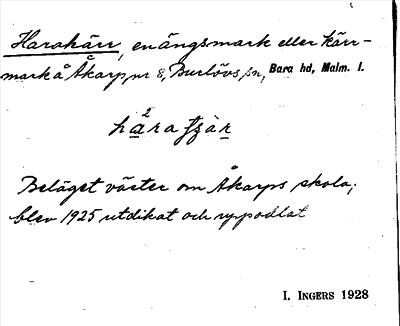 Harakärr, en ängsmark eller kärr-
mark å Åkarp, nr 8, Burlövs sn, Bara hd, Malm. l.
Beläget väster om Åkarps skola;
blev 1925 utdikat och uppodlat
I. INGERS 1928